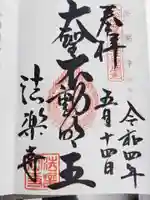 奉拝
令和四年
五月十四日
大聖不動明王
法楽寺